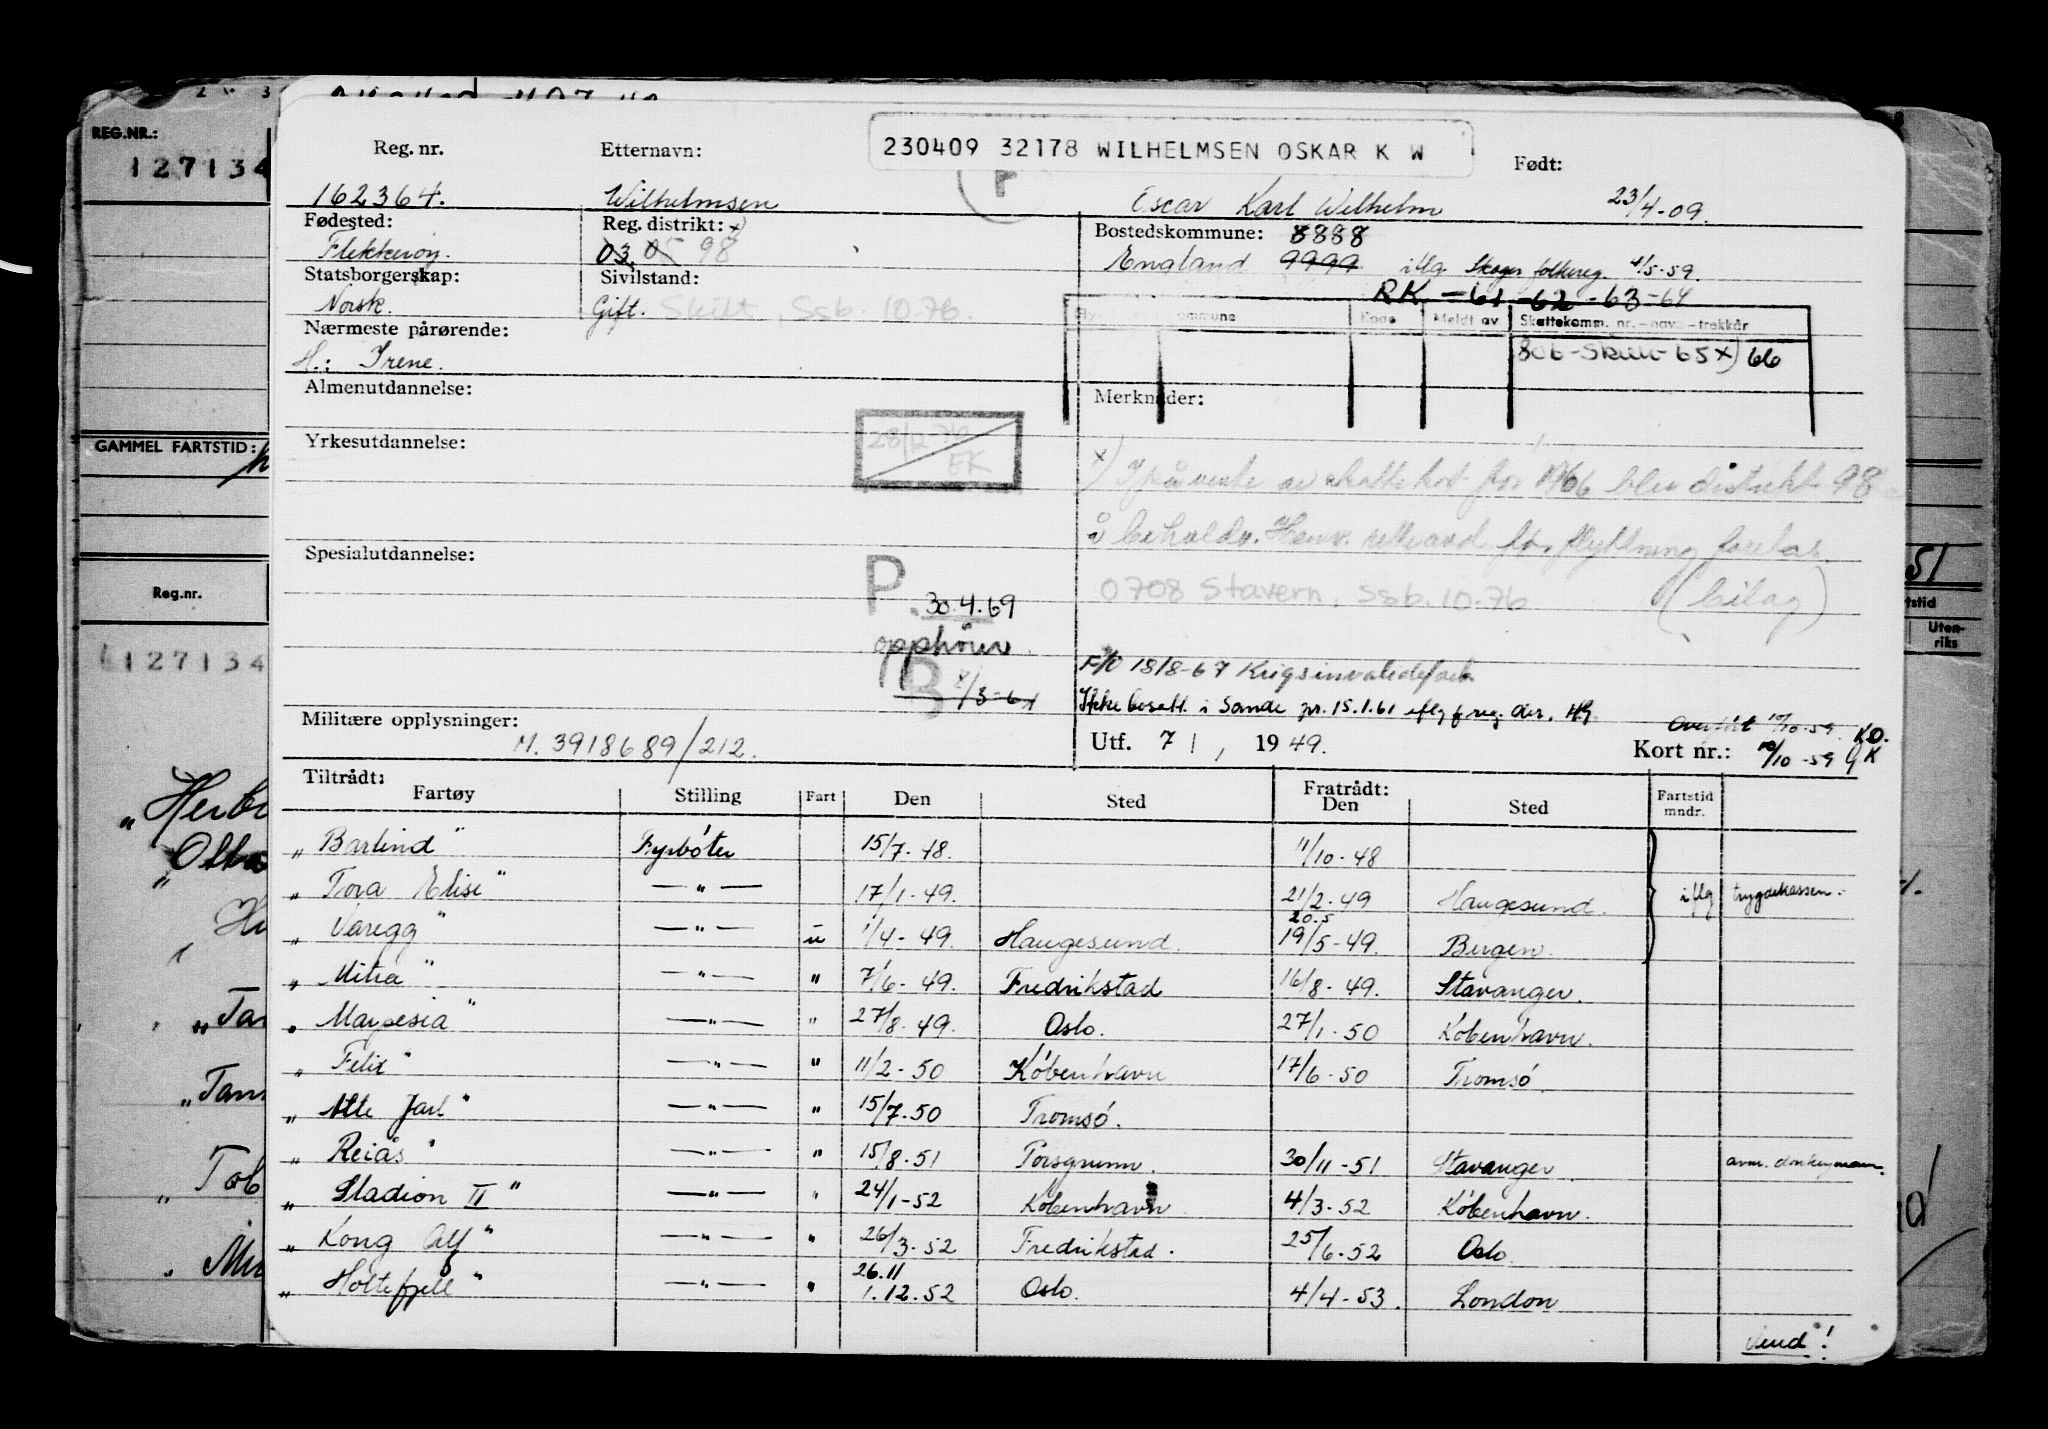 REG.NR.:
127134
GAMMEL FARTSTID:
Reg.nr.
127134
51
Uten-
riks
Reg. nr.
Etternavn:
230409 32178 WILHELMSEN OSKAR K W
Født:
162364.
Wilhelmsen
F
Oscar Karl Wilhelm
23/4-09.
Fødested:
Reg. distrikt: x)
Bostedskommune: 8888
Flekkerøy.
03 05 98
England 9999 iflg Skoger folkereg. 4/5-59.
Statsborgerskap:
Sivilstand:
RK. -61 -62 -63 -64
Norsk.
Gift. Skilt, Ssb. 10.76.
Kode Meldt av Skattekomm. nr. – navn – trekkår
Nærmeste pårørende:
H.: Irene.
65 x) 66
Almenutdannelse:
Merknader:
Yrkesutdannelse:
28/12
EK
x) I påvente av skattekort for 1966 blir distrikt 98
å beholde. Henv. for flytning foretas.
Spesialutdannelse:
0708 Stavern, Ssb. 10.76 (bilag)
P. 30.4.69
opphører
B 8/3-61
F/O 18/8-67 Krigsinvalidesak
Ikke bosatt i Sande pr. 15.1.61 iflg f.reg. der. HG
Militære opplysninger:
M. 3918689/212.
Utf. 7/1, 1949.
Overført 10/10-59. KO.
Kort nr.: 10/10-59 GK
Tiltrådt:
Fartøy Stilling Fart Den Sted Fratrådt: Den Sted Fartstid mndr.
„ Barlind " Fyrbøter 15/7-48. 11/10-48
„ Tora Elise " —"— 17/1-49. 21/2-49 Haugesund. iflg trygdekassen.
20.5
„ Varegg " —"— u 1/4-49. Haugesund. 19/5-49. Bergen.
„ Mitra " —"— " 7/6-49. Fredrikstad 16/8-49. Stavanger.
„ Marpesia " —"— " 27/8-49. Oslo. 27/1-50 København.
„ Felix " —"— " 11/2-50 København 17/6-50 Tromsø.
„ Atle Jarl " —"— " 15/7-50 Tromsø.
„ Reiås " —"— " 15/8-51 Porsgrunn. 30/11-51 Stavanger. avm. donkeyman.
„ Stadion II " —"— " 24/1-52 København 4/3-52 København.
„ Kong Alf " —"— " 26/3-52 Fredrikstad. 25/6-52 Oslo.
26.11
„ Holtefjell " —"— " 1.12.52 Oslo. 4/4-53. London
Vend!